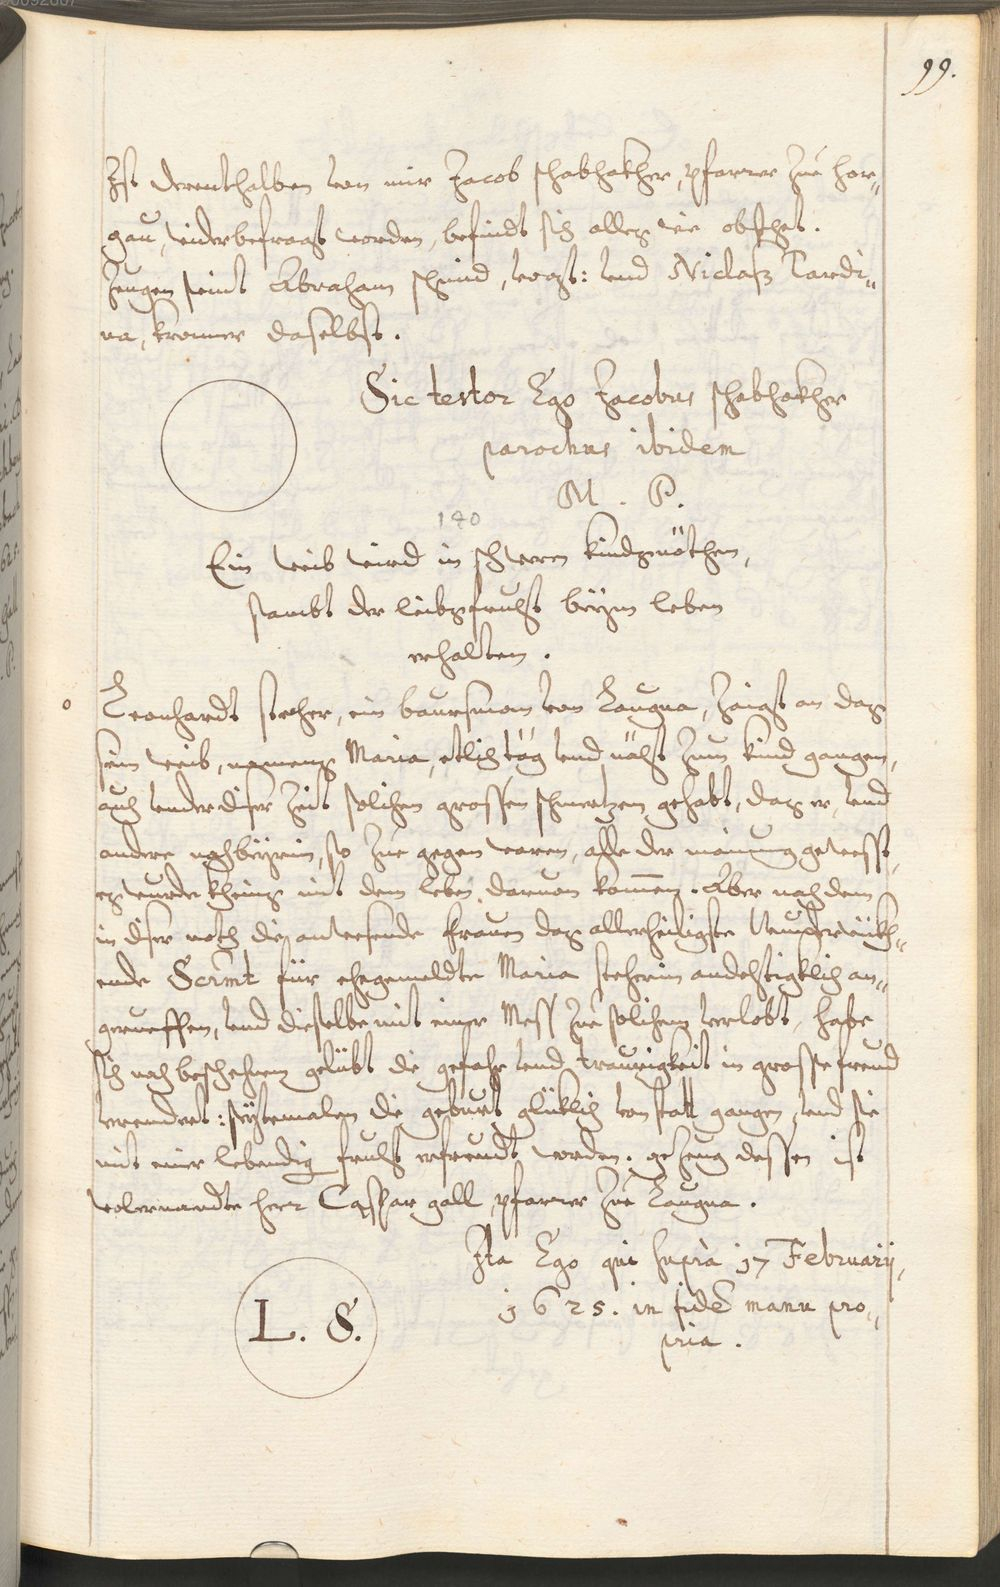 99.
Ist derenthalben von mir Jacob schabhakher, pfarrer zue hor„
gau, widerbefragt worden, befindt sich alles wie obsthet.
Zeugen seint Abraham schmid, vogt: vnd Niclaß Tardi„
na, kramer daselbst.
Sic testor Ego Jacobus schabhakher
parochus ibidem
M. P.
140
Ein weib wird in schweren kindsnöthen,
sambt der leibsfrucht beÿm leben
erhalten.
Leonhardt stecher, ein baursman von Laugna, zaigt an das
sein weib, namens Maria, etlich täg vnd nächt zum kind gangen,
auch vnder diser zeit solichen grossen schmertzen gehabt, das er, vnd
andere nachbeÿrin, so zue gegen waren, alle der mainung gewesst,
es wurde kheins mit dem leben daruon kommen. Aber nach dem
in diser noth die anwesende frauen das allerheiligste Wunderwürkh„
ende Scrmt für ehegemeldte Maria stecherin andechtigklich an„
gerueffen, vnd dieselbe mit einer Mess zue solichem verlobt, habe
sich nach beschehnem gelübt die gefahr vnd traurigkeit in grosse freud
verendert: seÿtemalen die geburt glüklich von statt gangen, vnd sie
mit einer lebendig frucht erfreudt worden. gezeug dessen ist
wolernandte herr Caspar gall, pfarrer zue Laugna.
Ita Ego qui supra 17 Februarÿ,
1625. in fidẽ manu pro„
pria.
L. S.